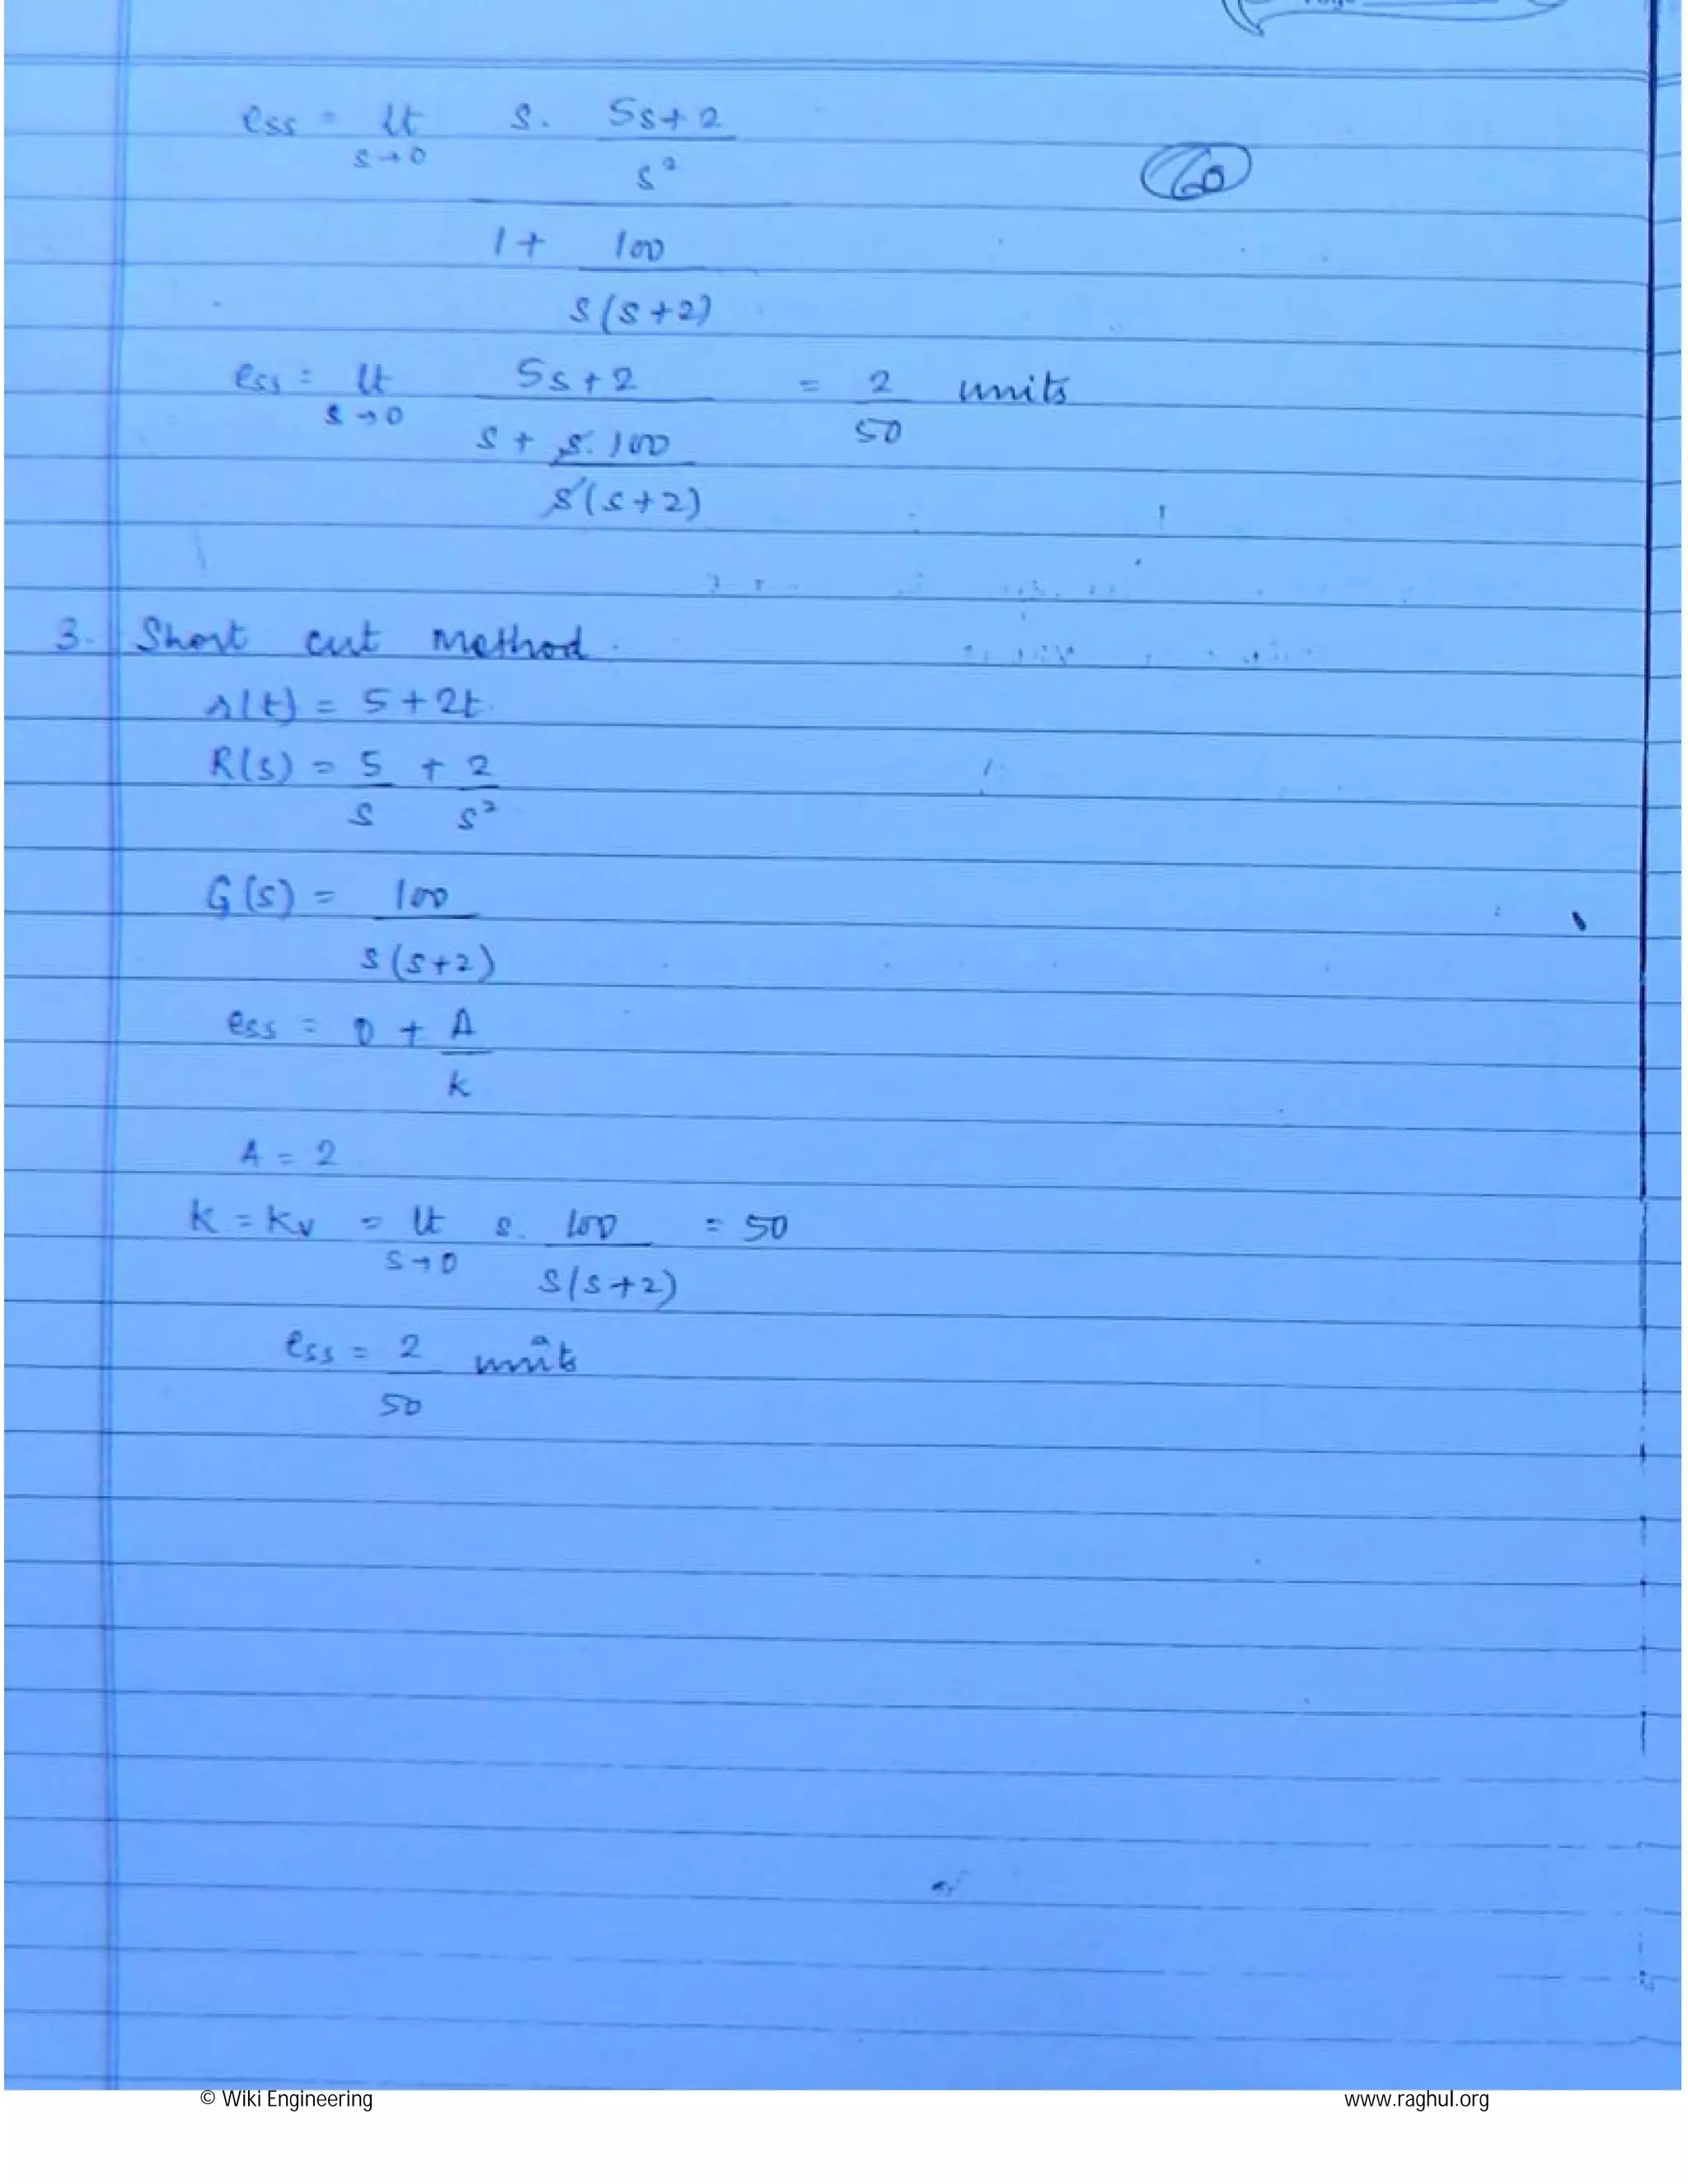 ess = lt s→0 s. 5s+2 / s²
60
1 + 100 / s(s+2)
ess = lt s→0 5s+2 / s + s.100 / s(s+2) = 2/50 units
3. Short cut method.
r(t) = 5+2t.
R(s) = 5/s + 2/s²
G(s) = 100 / s(s+2)
ess = 0 + A/k
A = 2
k = kv = lt s→0 s. 100 / s(s+2) = 50
ess = 2/50 units
© Wiki Engineering
www.raghul.org